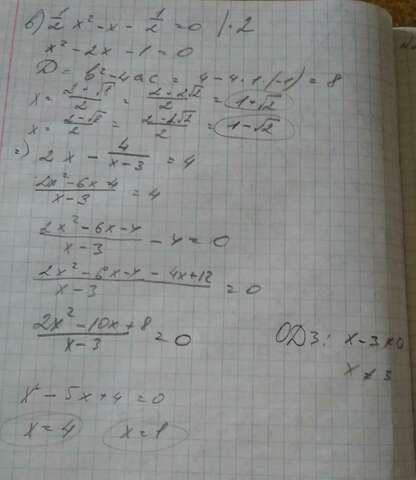 в) 1/2 x² - x - 1/2 = 0 | · 2
x² - 2x - 1 = 0
D = b² - 4ac = 4 - 4 · 1 · (-1) = 8
x = (2 + √8)/2 = (2 + 2√2)/2 = 1 + √2
x = (2 - √8)/2 = (2 - 2√2)/2 = 1 - √2
г) 2x - 4/(x - 3) = 4
(2x² - 6x - 4)/(x - 3) = 4
(2x² - 6x - 4)/(x - 3) - 4 = 0
(2x² - 6x - 4 - 4x + 12)/(x - 3) = 0
(2x² - 10x + 8)/(x - 3) = 0
ОДЗ: x - 3 ≠ 0
x ≠ 3
x² - 5x + 4 = 0
x = 4 x = 1